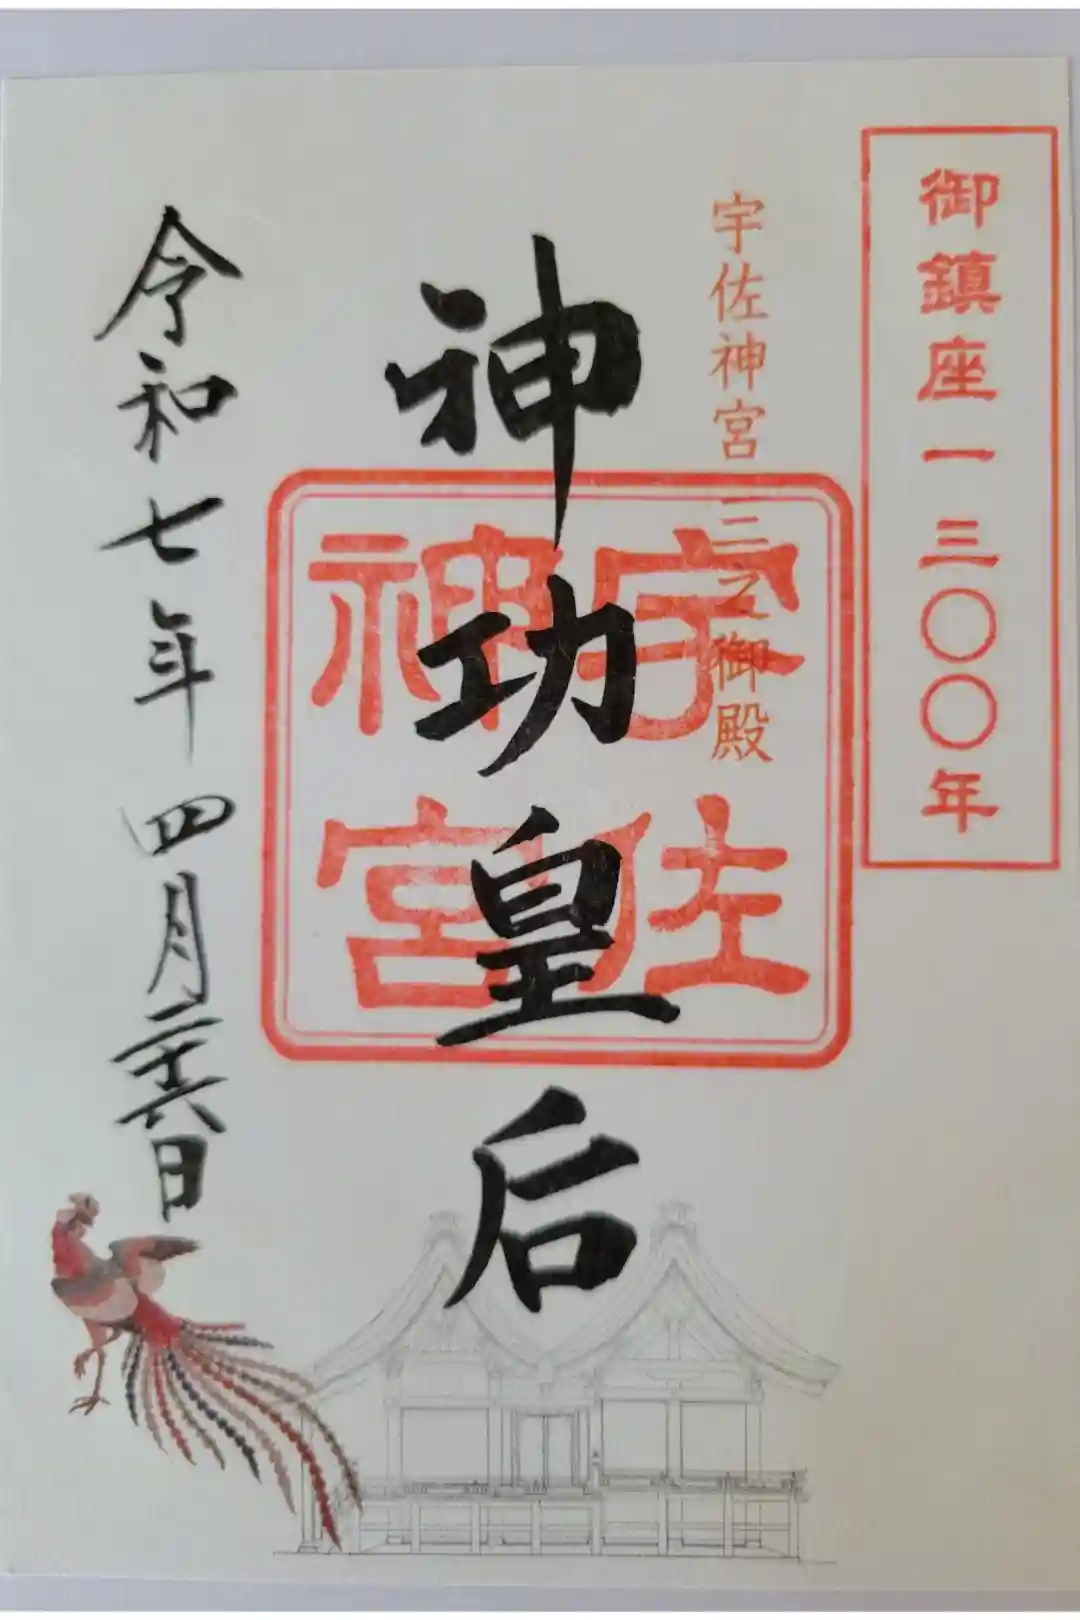 御鎮座一三〇〇年
宇佐神宮 三之御殿
神功皇后
宇佐
神宮
令和七年四月二十六日